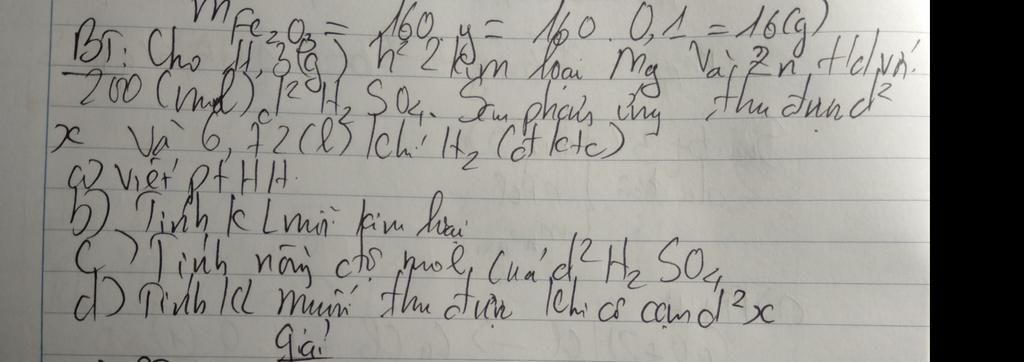 mFe2O3 = 160.y = 160.0,1 = 16(g)
BT: Cho 11,3(g) h² 2 kim loại Mg Và Zn, t/d với
200 (ml) d² H2SO4. Sau phản ứng thu được d²
x Và 6,72(l) khí H2 (đktc)
a) Viết ptHH.
b) Tính KL mỗi kim loại
c) Tính nồng độ mol của d² H2SO4
d) Tính KL muối thu được khi cô cạn d²x
Giải